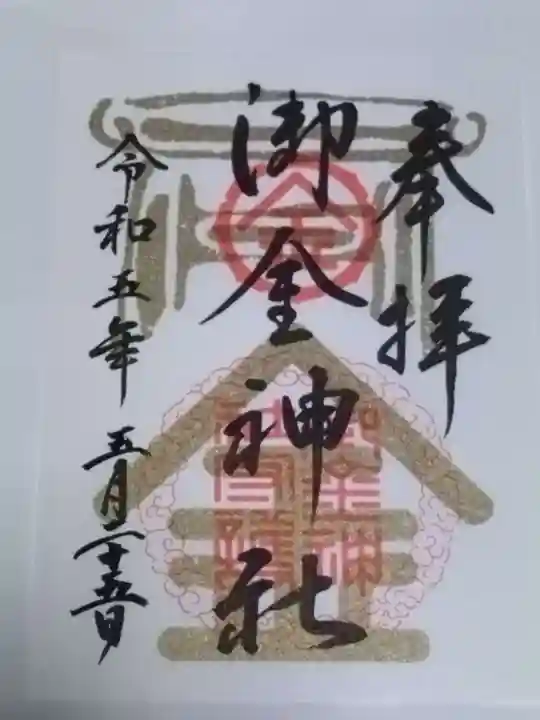 奉拝
御金神社
令和五年 五月二十五日